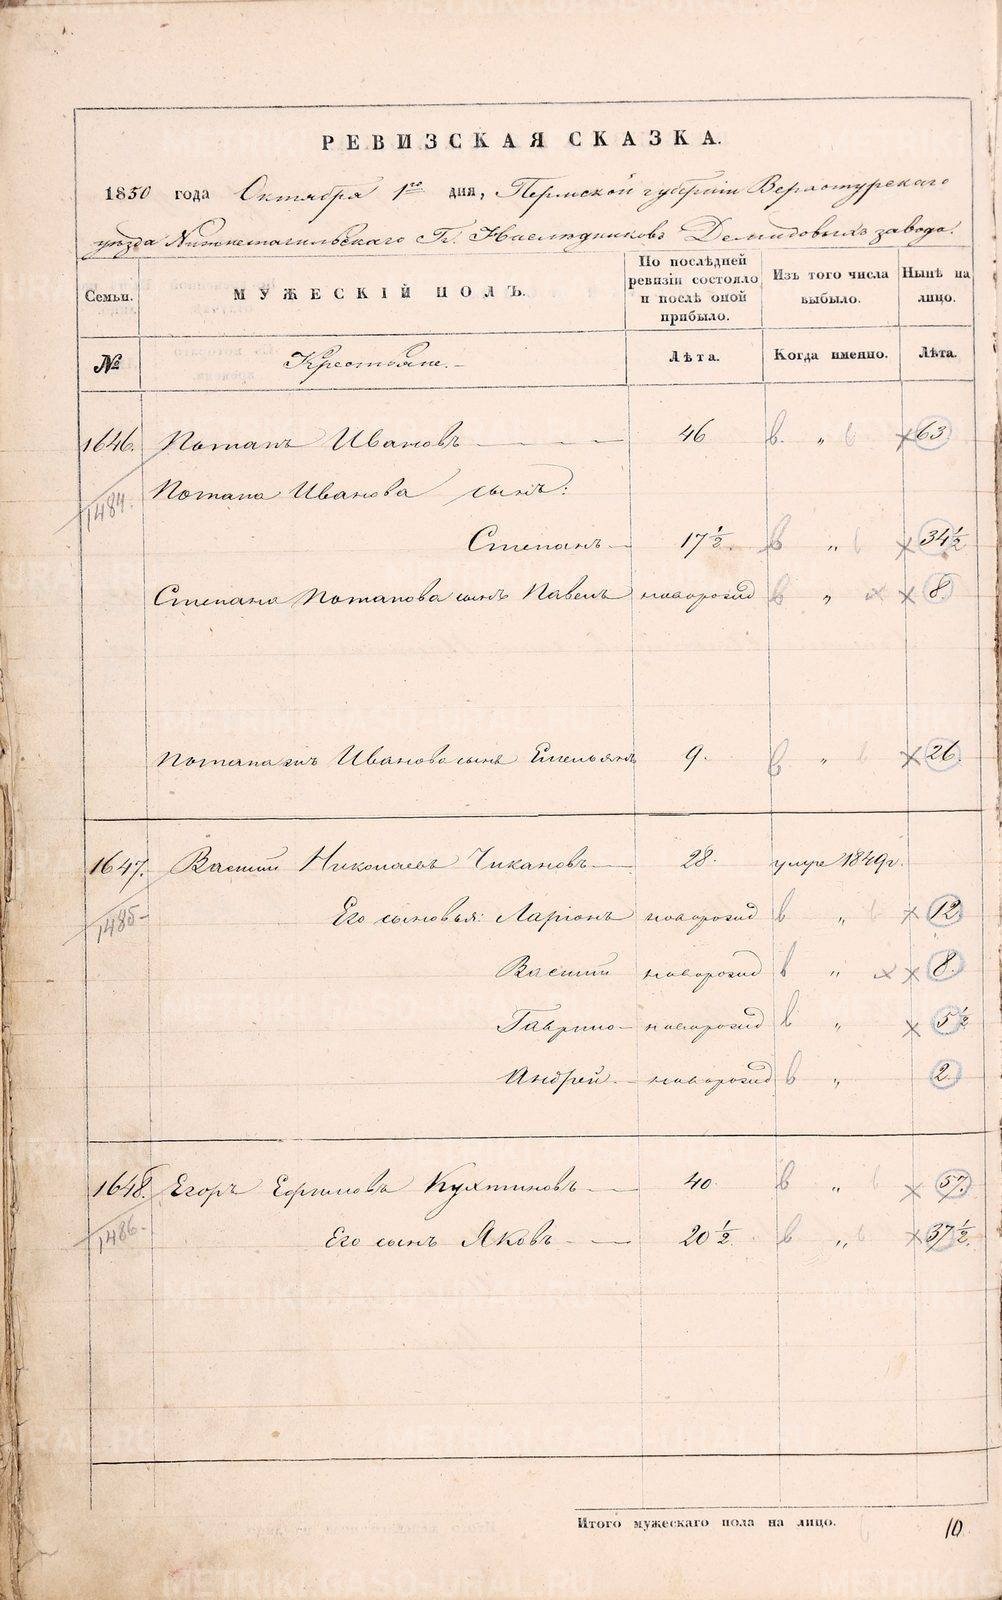 РЕВИЗСКАЯ СКАЗКА.
1850 года Октября 1го дня, Пермской губернии Верхотурскаго
уезда Нижнетагильскаго Гг. Наследниковъ Демидовыхъ завода.
Семьи. МУЖЕСКІЙ ПОЛЪ. По послѣдней ревизіи состояло и послѣ оной прибыло. Изъ того числа выбыло. Нынѣ на лицо.
№ Крестьяне. Лѣта. Когда именно. Лѣта.
1646. Потапъ Ивановъ 46 в. „ в × 63
1484. Потапа Иванова сынъ:
Степанъ 17½. в „ в × 34½
Степана Потапова сынъ Павелъ новорожд в „ × × 8.
Потапа Иванова сынъ Емельянъ 9. в „ в × 26.
1647. Василий Николаевъ Чикановъ 28. умре 1849 г.
1485 Его сыновья: Ларіонъ новорожд в „ в × 12
Василий новорожд в „ × × 8.
Гаврило новорожд в „ × 5½
Андрей новорожд в „ 2.
1648. Егоръ Ефимовъ Кухтиновъ 40. в „ в × 57.
1486 Его сынъ Яковъ 20½. в „ в × 37½.
Итого мужескаго пола на лицо. 10
METRIKI.GASO-URAL.RU